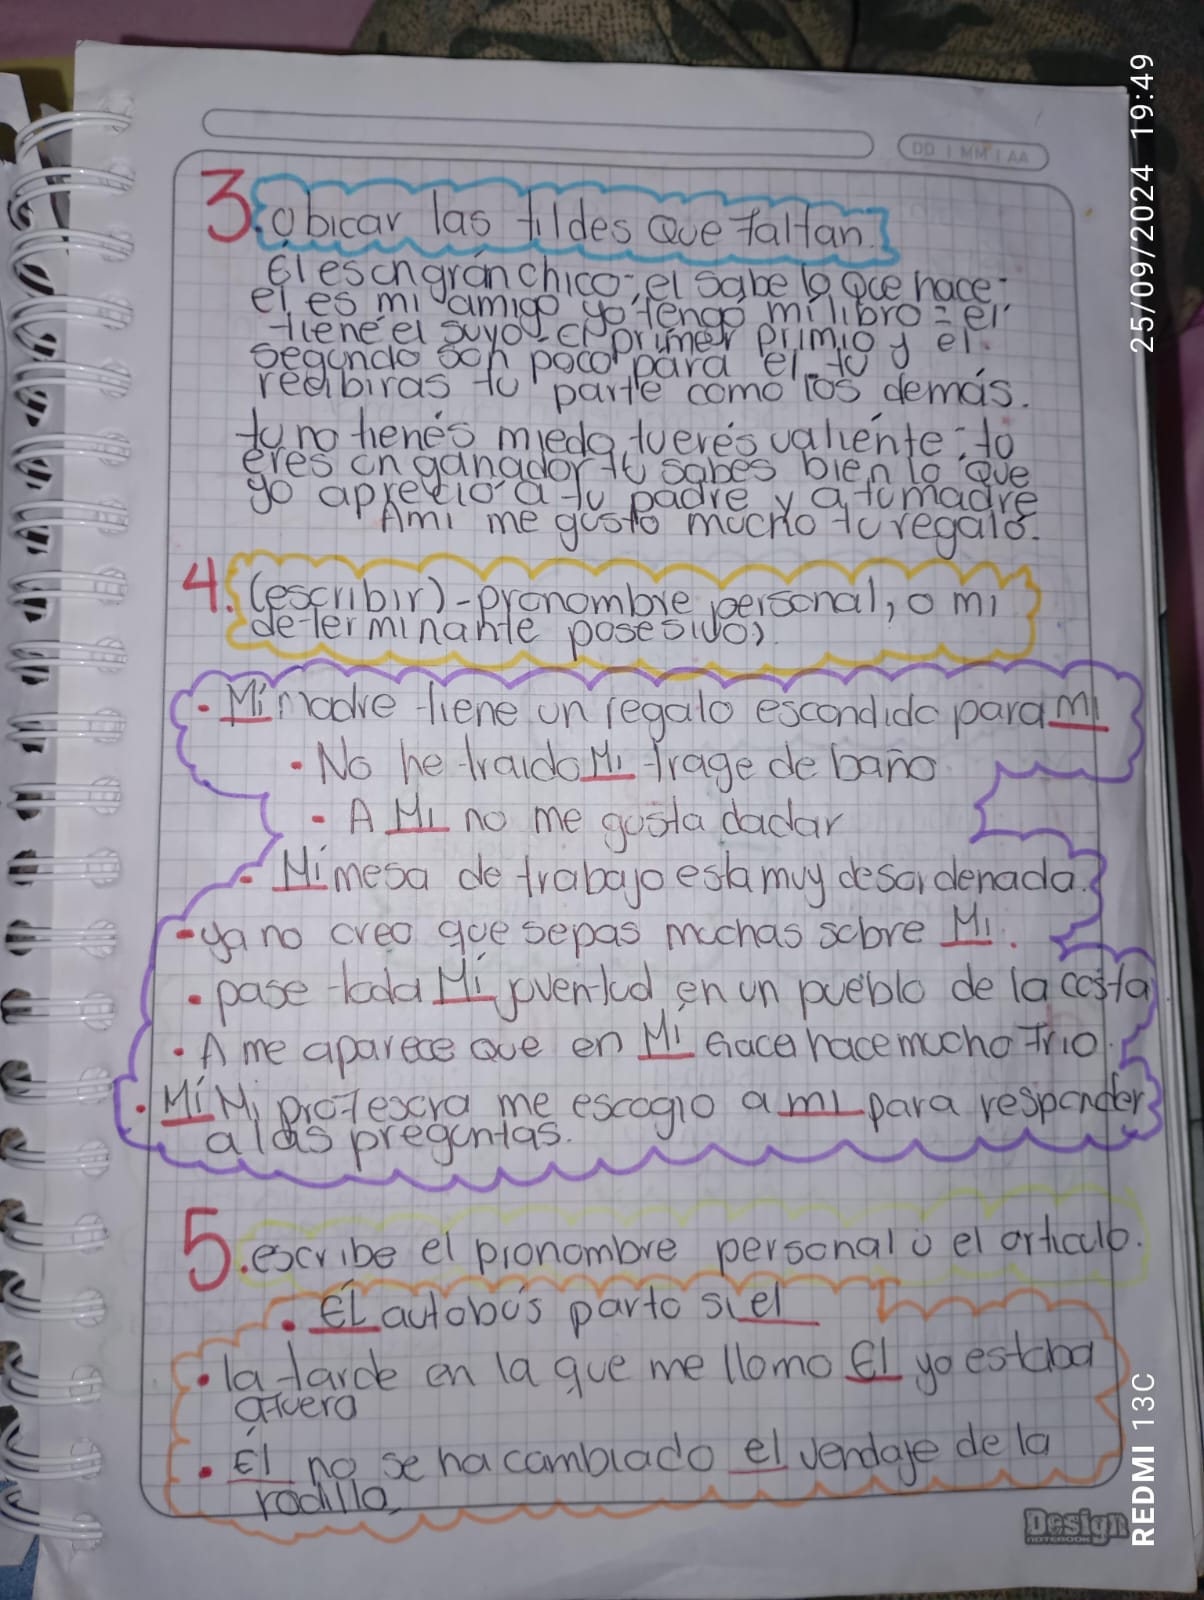 DD | MM | AA
3. obicar las tildes Que faltan.
El es en gran chico; el sabe lo Qce hace;
el es mi amigo yo tengo mi libro = el
tiene el suyo = el primer primio y el
segundo son poco para el. tu
recibiras tu parte como los demás.
tu no tienes miedo, tu eres valiente; to
eres un ganador tu sabes bien lo Que
yo aprecio a tu padre y a tu madre
Ami me gusto mucho tu regalo.
4. (escribir)-pronombre personal, o mi
determinante posesivo)
• Mi madre tiene un regalo escondido para mi
• No he traido Mi trage de baño
• A Mi no me gusta dadar
• Mí mesa de trabajo esta muy desordenada.
• ya no creo que sepas muchas sobre Mi.
• pase toda Mí juventud en un pueblo de la costa.
• A me aparece Que en Mí Gaca hace mucho Frio.
• Mí Mi profesora me escogio a mi para responder
a las preguntas.
5. escribe el pronombre personal o el articulo.
• EL autobus parto si el
• la tarde en la que me llamo El yo estaba
afuera
• Él no se ha cambiado el vendaje de la
rodilla
Design
NOTEBOOK
25/09/2024 19:49
REDMI 13C